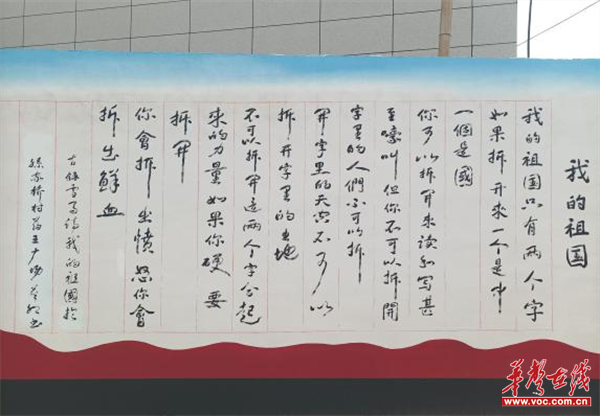 我的祖国
我的祖国只有两个字
如果拆开来一个是中
一個是國
你可以拆開来读和写甚
至嚎叫但你不可以拆開
字里的人們不可以拆
開字里的天空不可以
拆开字里的土地
不可以拆開這两个字合起
来的力量如果你硬要
拆開
你會拆出憤怒你會
拆出鲜血
诗我的祖國於
橋村
华声在线
www.voc.com.cn